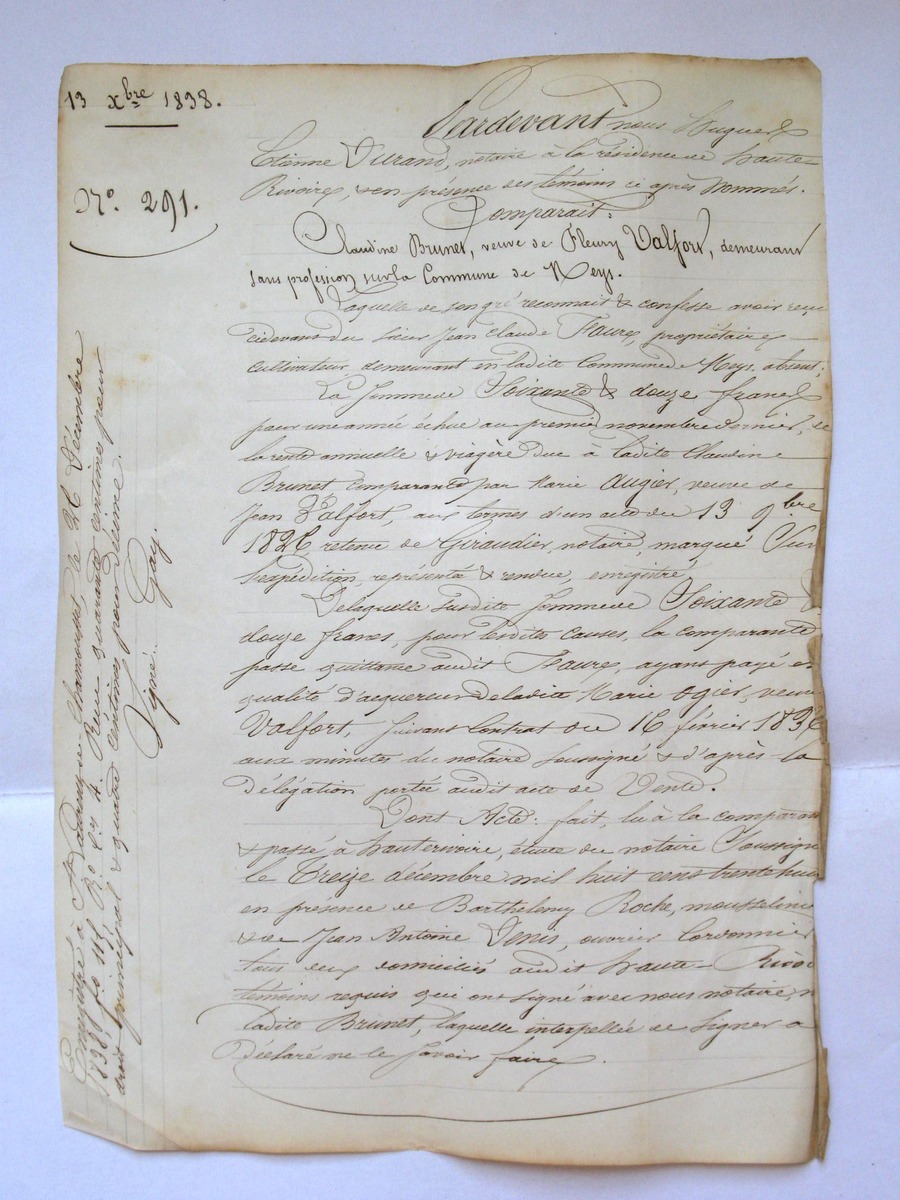 13 xbre 1838.
No. 291.
Pardevant nous Hugues
Etienne Durand, notaire à la résidence de haute-
Rivoire, & en présence des témoins ci après nommés.
Comparait:
Claudine Brunet, veuve de Fleury Valfort, demeurant
sans profession sur la Commune de Meys.
Laquelle de son gré reconnait & confesse avoir reçu
cidevant du sieur Jean Claude Faure, propriétaire
cultivateur, demeurant en ladite Commune de Meys, absent;
La somme de Soixante & douze francs
pour une année échue au premier novembre dernier, de
la rente annuelle & viagère due à ladite Claudine
Brunet comparante par Marie Augier, veuve de
Jean Valfort, aux termes d'un acte du 13 9bre
1826 retenu de Giraudier, notaire, marqué sur
l'expédition représenté & rendue, enregistré
Delaquelle susdite somme de Soixante &
douze francs, pour lesdites causes, la comparante
passe quittance audit Faure, ayant payé en
qualité d'acquereur de ladite Marie Ogier, veuve
Valfort, suivant Contrat du 16 février 1836
aux minutes du notaire soussigné & d'après la
Délégation portée audit acte de Vente.
Dont Acte: fait, lu à la comparan
& passé à hauterivoire, étude du notaire Soussign
le Treize décembre mil huit cent trente huit
en présence de Barthelemy Roche, mousselinie
& de Jean Antoine Denis, ouvrier Cordonnier
tous deux domiciliés audit haute-Rivoi
témoins requis qui ont signé avec nous notaire, n
ladite Brunet, laquelle interpellée de signer a
Déclaré ne le savoir faire.
Enregistré à St. Laurent-de-Chamousset, le 26 Décembre
1838 fo. 118 Ro. c. 4. Reçu quarante centimes pour
droit principal & quatre centimes pour décime.
Signé: Gay.